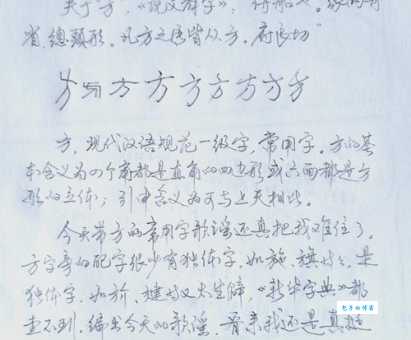 关于"方",《说文解字》:
省,總頭形。凡方之屬皆从方。府良切"
方 方 方 方 方 方 方
方,现代汉语规范一级字,常用字。方的基
本含义为四个角都是直角的四边形或六面都是方
形的立体;引申含义为可与上天相比。
今天带方的常用字歌谣还真把我难住了。
方字旁的配字很少有独体字,如施、旗 是
独体字,如 又太生僻,《新华字典》都
查不到,编出今天的歌谣, 我还是真